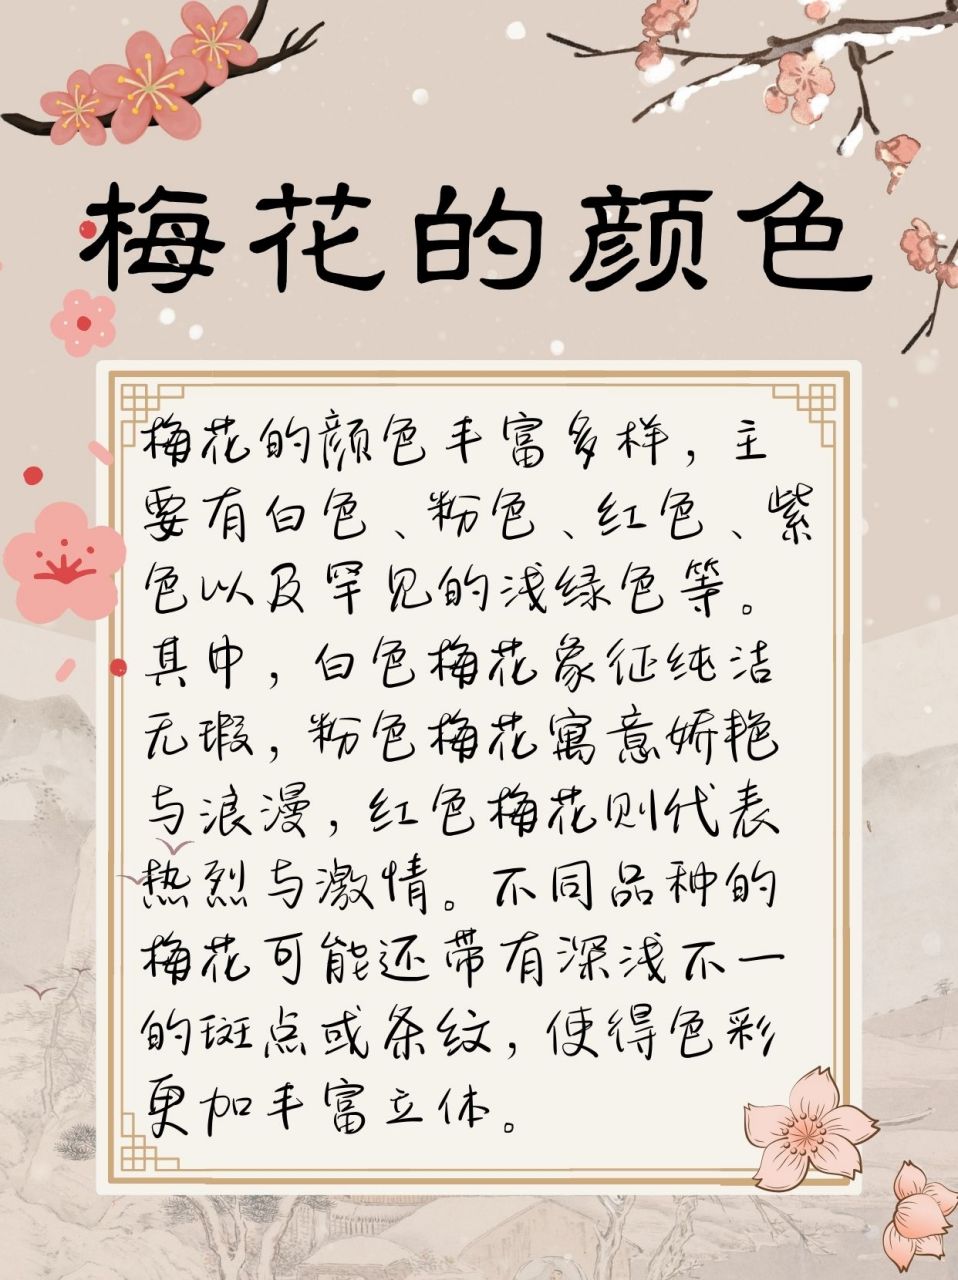 梅花的颜色
梅花的颜色丰富多样，主
要有白色、粉色、红色、紫
色以及罕见的浅绿色等。
其中，白色梅花象征纯洁
无瑕，粉色梅花寓意娇艳
与浪漫，红色梅花则代表
热烈与激情。不同品种的
梅花可能还带有深浅不一
的斑点或条纹，使得色彩
更加丰富立体。